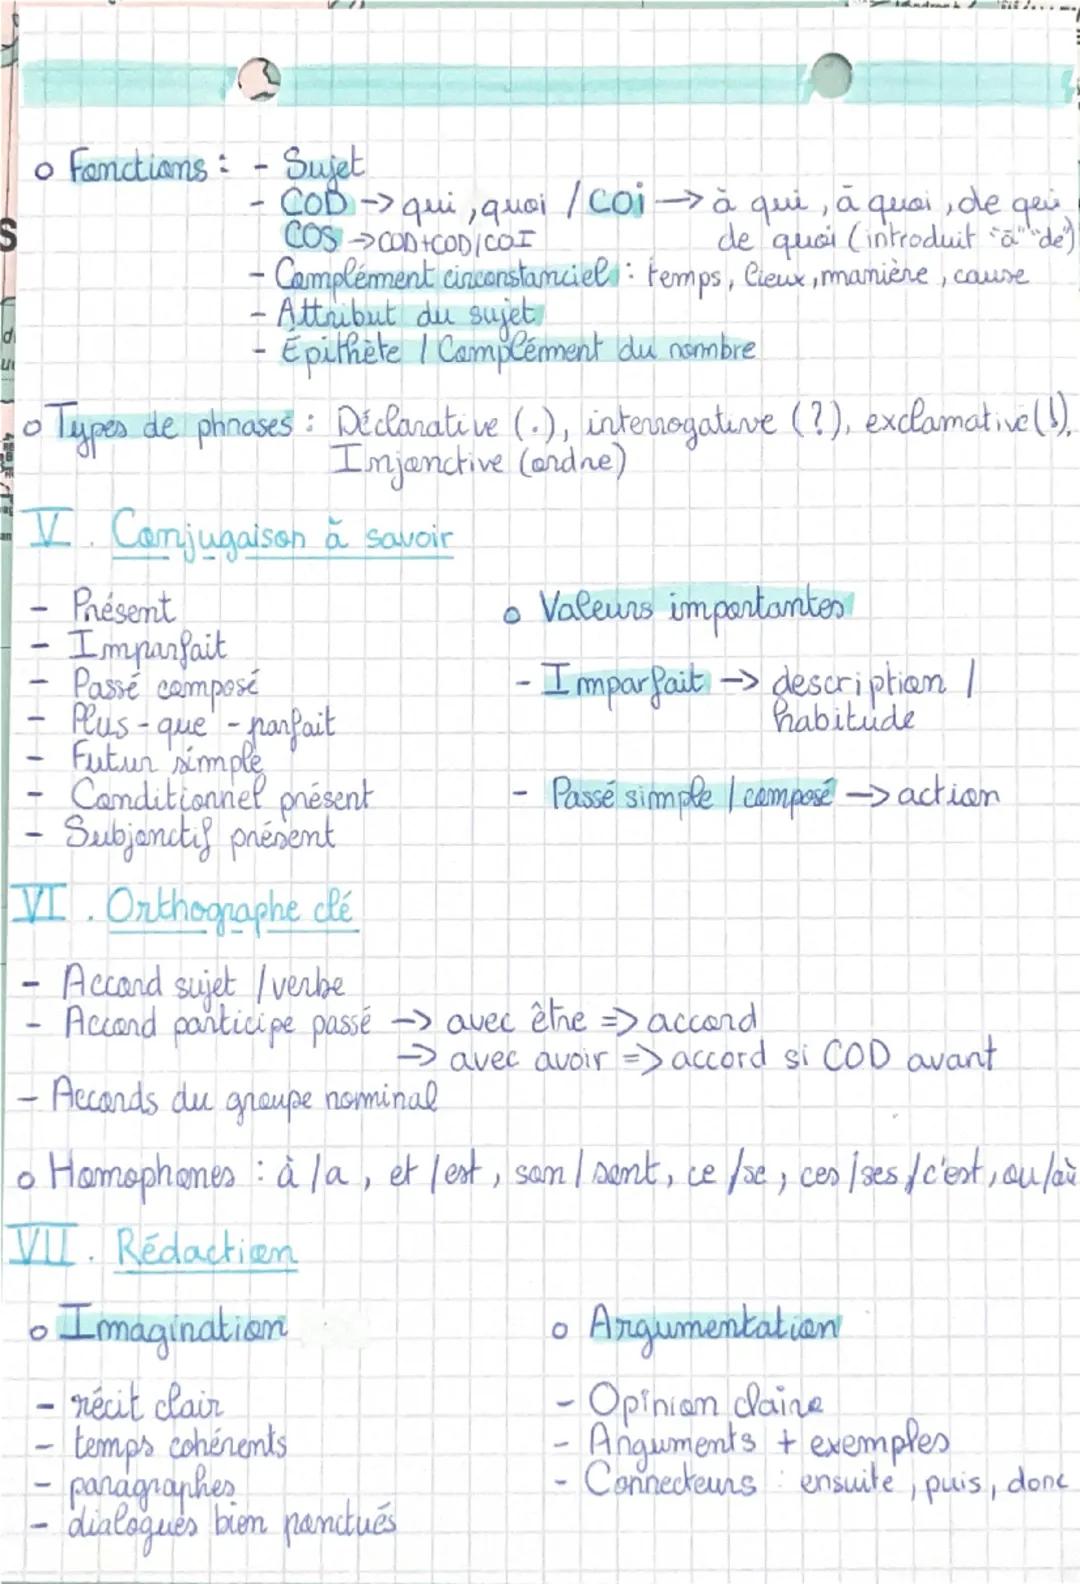 o Fonctions : - Sujet
- COD -> qui, quoi / COI -> à qui, à quoi, de qui
COS -> COD+COD/COI
de quoi (introduit "à" "de")
- Complément circonstanciel : temps, lieux, manière, cause
- Attribut du sujet
- Épithète / Complément du nombre
o Types de phrases : Déclarative (.), interrogative (?), exclamative (!),
Injonctive (ordre)
V. Conjugaison à savoir
- Présent
- Imparfait
- Passé composé
- Plus-que-parfait
- Futur simple
- Conditionnel présent
- Subjonctif présent
o Valeurs importantes
- Imparfait -> description /
habitude
- Passé simple / composé -> action
VI. Orthographe clé
- Accord sujet / verbe
- Accord participe passé -> avec être => accord
-> avec avoir => accord si COD avant
- Accords du groupe nominal
o Homophones : à/a, et/est, son/sont, ce/se, ces/ses/c'est, ou/où
VII. Rédaction
o Imagination
- récit clair
- temps cohérents
- paragraphes
- dialogues bien ponctués
o Argumentation
- Opinion claire
- Arguments + exemples
- Connecteurs : ensuite, puis, donc